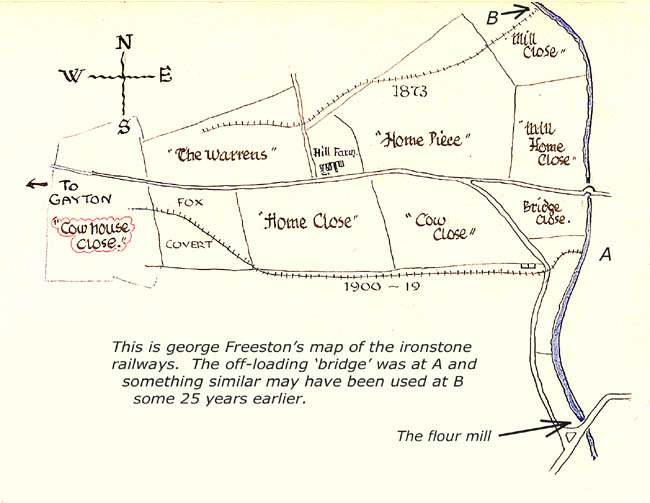 B
N
W E
S
"Mill
Close"
1873
"The Warrens"
Hill Farm.
"Home Piece"
"Mill
Home
Close"
TO
GAYTON
FOX
COVERT
"Cowhouse
Close."
"Home Close"
"Cow
Close"
Bridge
Close.
A
1900 - 19
This is george Freeston's map of the ironstone
railways. The off-loading 'bridge' was at A and
something similar may have been used at B
some 25 years earlier.
The flour mill